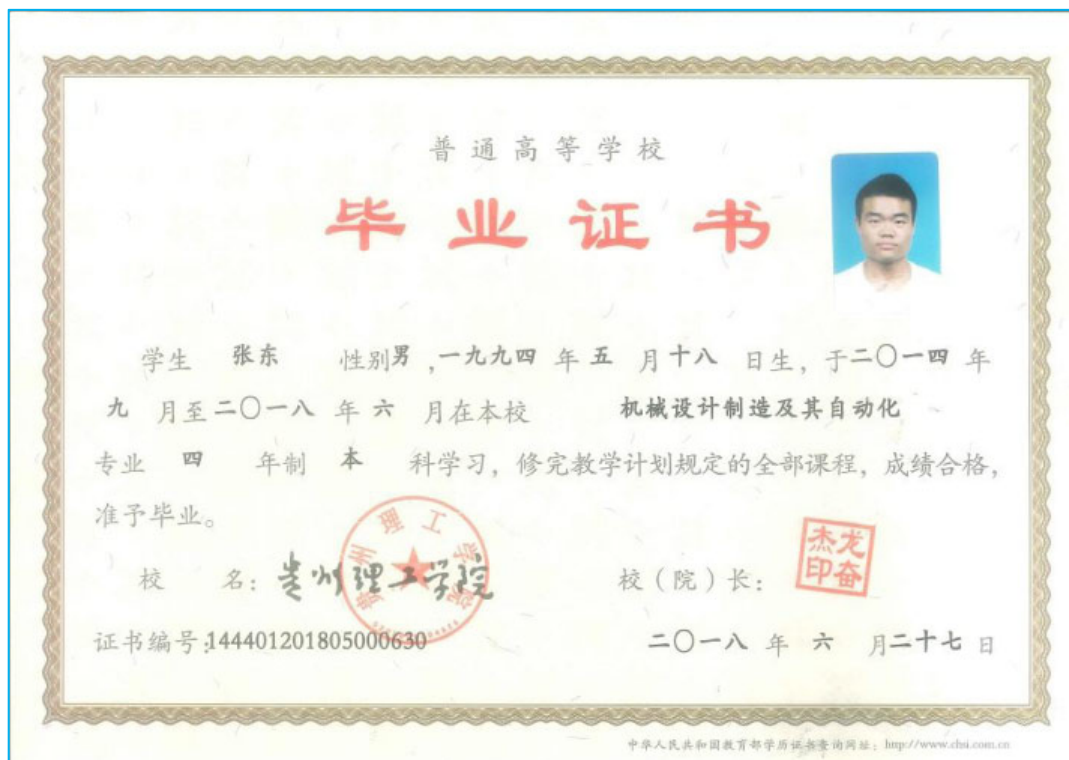 普通高等学校
毕业证书
学生 张东 性别男,一九九四年五月十八日生,于二〇一四年
九月至二〇一八年六月在本校 机械设计制造及其自动化
专业 四 年制 本 科学习,修完教学计划规定的全部课程,成绩合格,
准予毕业。
贵州理工学院
龙奋杰印
校 名:贵州理工学院 校(院)长:
证书编号:144401201805000630 二〇一八年六月二十七日
中华人民共和国教育部学历证书查询网址:http://www.chsi.com.cn